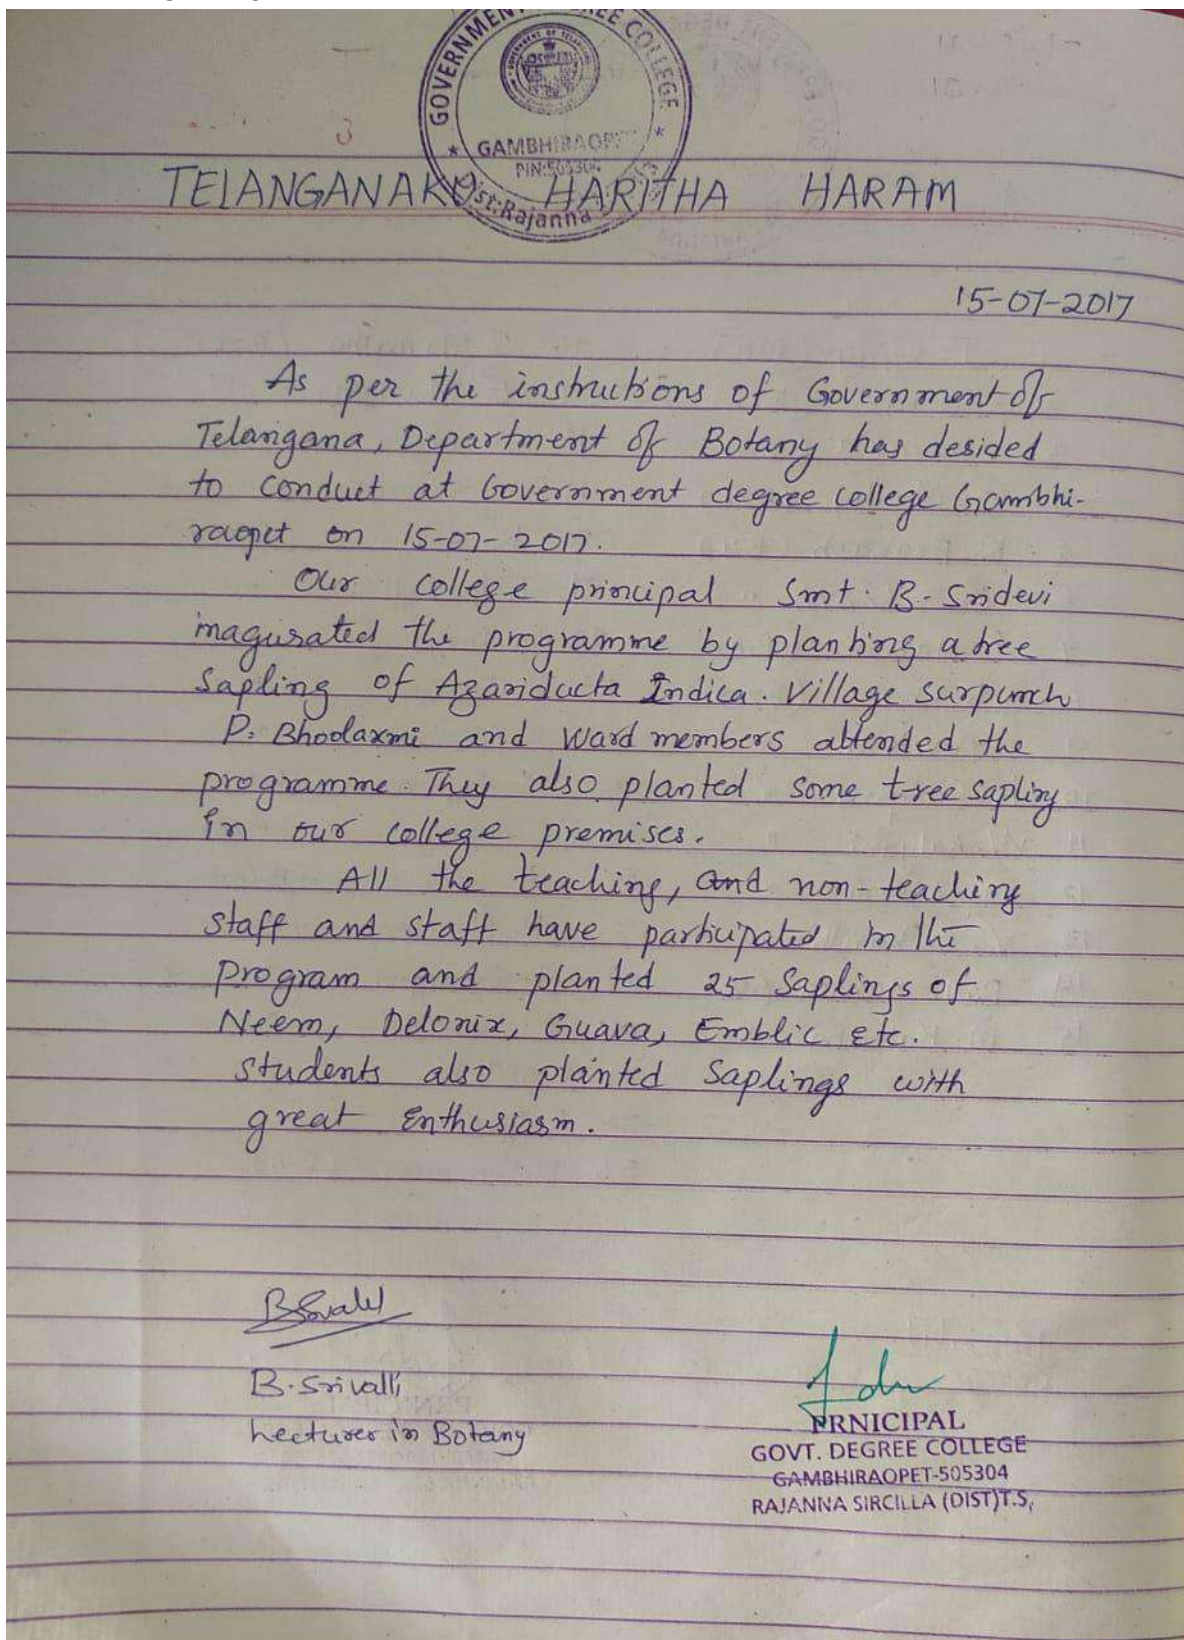 GOVERNMENT DEGREE COLLEGE
GOVERNMENT OF TELANGANA
* GAMBHIRAOPET *
PIN:505304
Dist:Rajanna
TELANGANAKU HARITHA HARAM
15-07-2017
As per the instructions of Government of
Telangana, Department of Botany has desided
to conduct at Government degree college Gambhi-
raopet on 15-07-2017.
Our college principal Smt. B. Sridevi
inagurated the programme by planting a tree
Sapling of Azariducta Indica. Village surpunch
P. Bhoolaxmi and Ward members attended the
programme. They also planted some tree sapling
in our college premises.
All the teaching, and non-teaching
staff and staff have participated in the
program and planted 25 Saplings of
Neem, Delonix, Guava, Emblic etc.
students also planted Saplings with
great Enthusiasm.
B. Srivalli
Lecturer in Botany
PRNICIPAL
GOVT. DEGREE COLLEGE
GAMBHIRAOPET-505304
RAJANNA SIRCILLA (DIST)T.S,